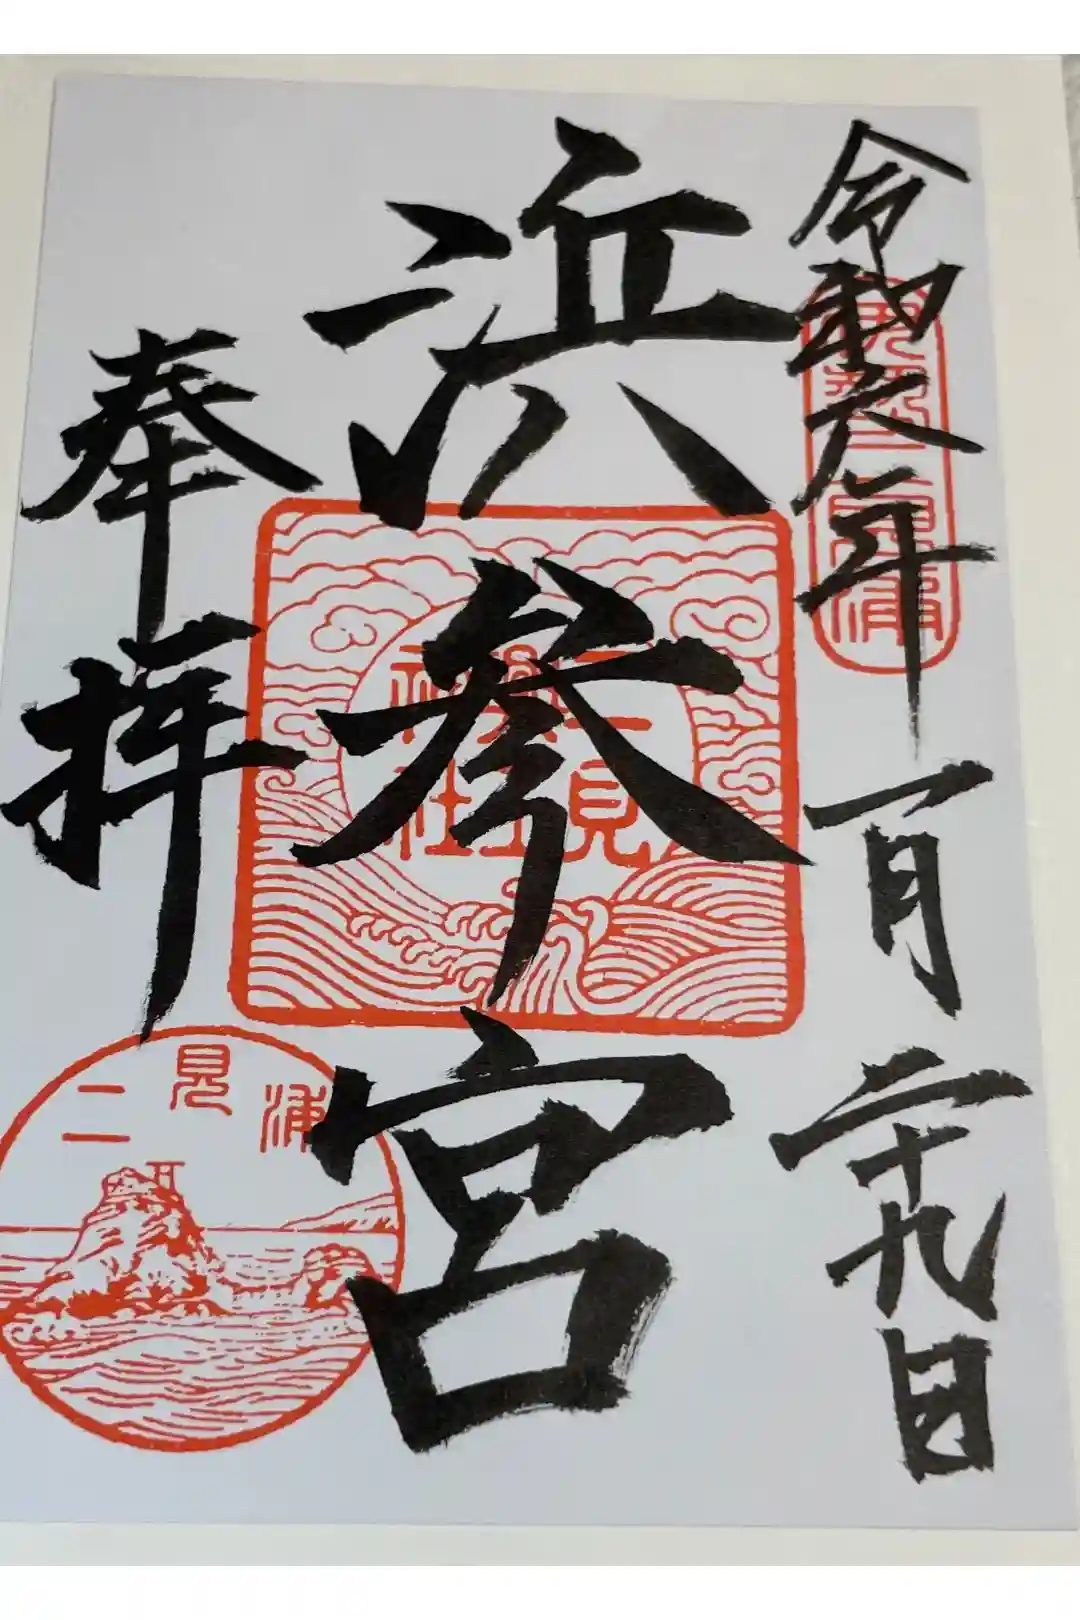 令和六年
一月
二十九日
伊勢二見浦
浜参宮
二見
興玉
神社
奉拝
二見浦